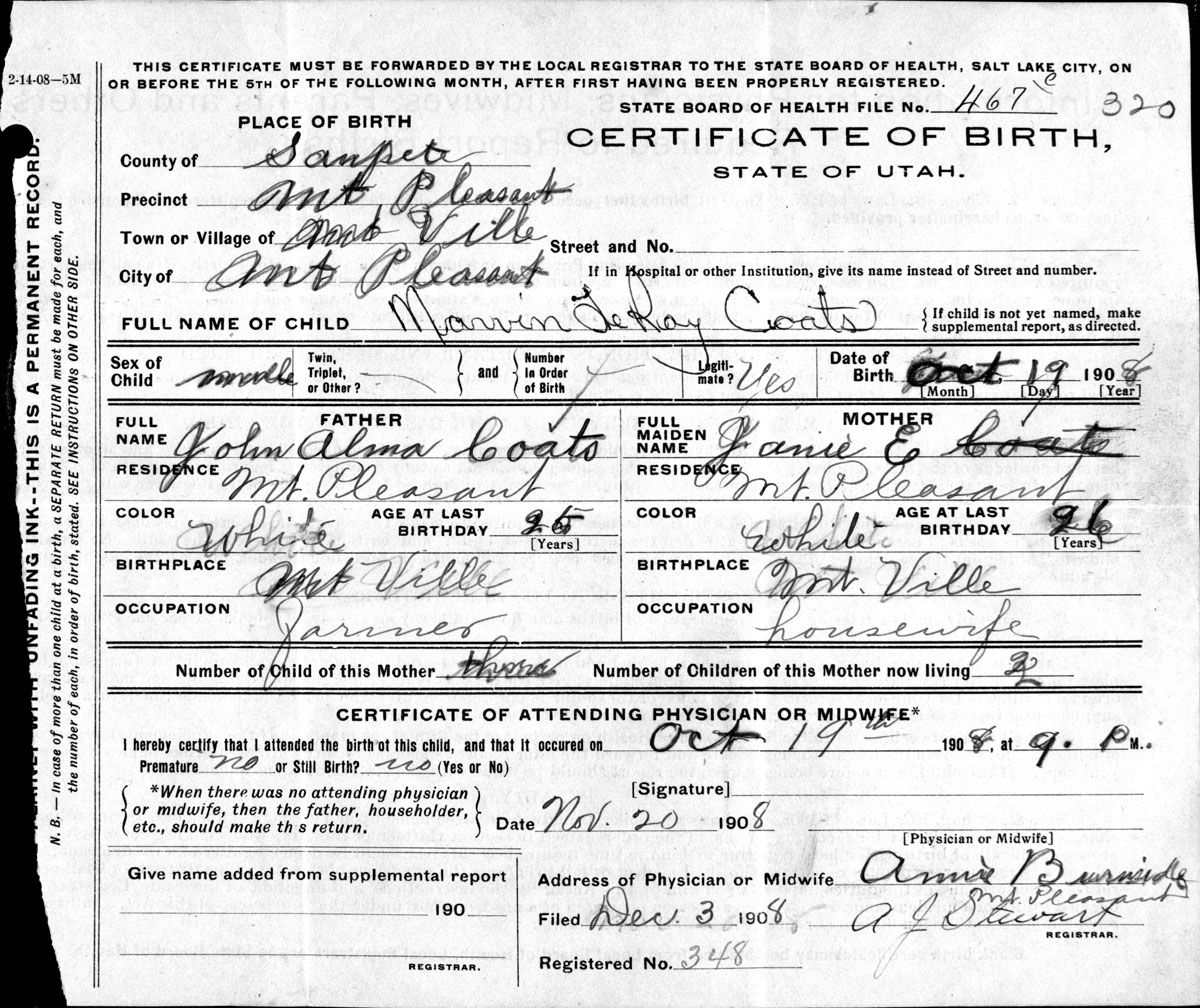 2-14-08—5M
THIS CERTIFICATE MUST BE FORWARDED BY THE LOCAL REGISTRAR TO THE STATE BOARD OF HEALTH, SALT LAKE CITY, ON
OR BEFORE THE 5TH OF THE FOLLOWING MONTH, AFTER FIRST HAVING BEEN PROPERLY REGISTERED.
STATE BOARD OF HEALTH FILE No. 467 320
PLACE OF BIRTH
CERTIFICATE OF BIRTH,
STATE OF UTAH.
County of Sanpete
Precinct Mt Pleasant
Town or Village of Mt Ville Street and No.
City of Mt Pleasant If in Hospital or other Institution, give its name instead of Street and number.
FULL NAME OF CHILD Marvin DeRay Coats { If child is not yet named, make
supplemental report, as directed.
Sex of Child Twin, Triplet, or Other? } and { Number in Order of Birth Legiti-mate? Yes Date of Birth Oct 19 1908
[Month] [Day] [Year]
FATHER MOTHER
FULL NAME John Alma Coats FULL MAIDEN NAME Janie E Coats
RESIDENCE Mt. Pleasant RESIDENCE Mt. Pleasant
COLOR White AGE AT LAST BIRTHDAY 25 [Years] COLOR White AGE AT LAST BIRTHDAY 26 [Years]
BIRTHPLACE Mt Ville BIRTHPLACE Mt. Ville
OCCUPATION Farmer OCCUPATION housewife
Number of Child of this Mother Number of Children of this Mother now living 2
CERTIFICATE OF ATTENDING PHYSICIAN OR MIDWIFE*
I hereby certify that I attended the birth of this child, and that it occured on Oct 19th 1908, at 9. P M..
Premature no or Still Birth? no (Yes or No)
{ *When there was no attending physician
or midwife, then the father, householder,
etc., should make th s return. }
[Signature]
Date Nov. 20 1908
[Physician or Midwife]
Give name added from supplemental report
190
REGISTRAR.
Address of Physician or Midwife Annie Burnside
Mt. Pleasant
Filed Dec. 3 1908 A J Stewart
REGISTRAR.
Registered No. 348
PLAINLY WITH UNFADING INK--THIS IS A PERMANENT RECORD.
N. B.— In case of more than one child at a birth, a SEPARATE RETURN must be made for each, and
the number of each, in order of birth, stated. SEE INSTRUCTIONS ON OTHER SIDE.